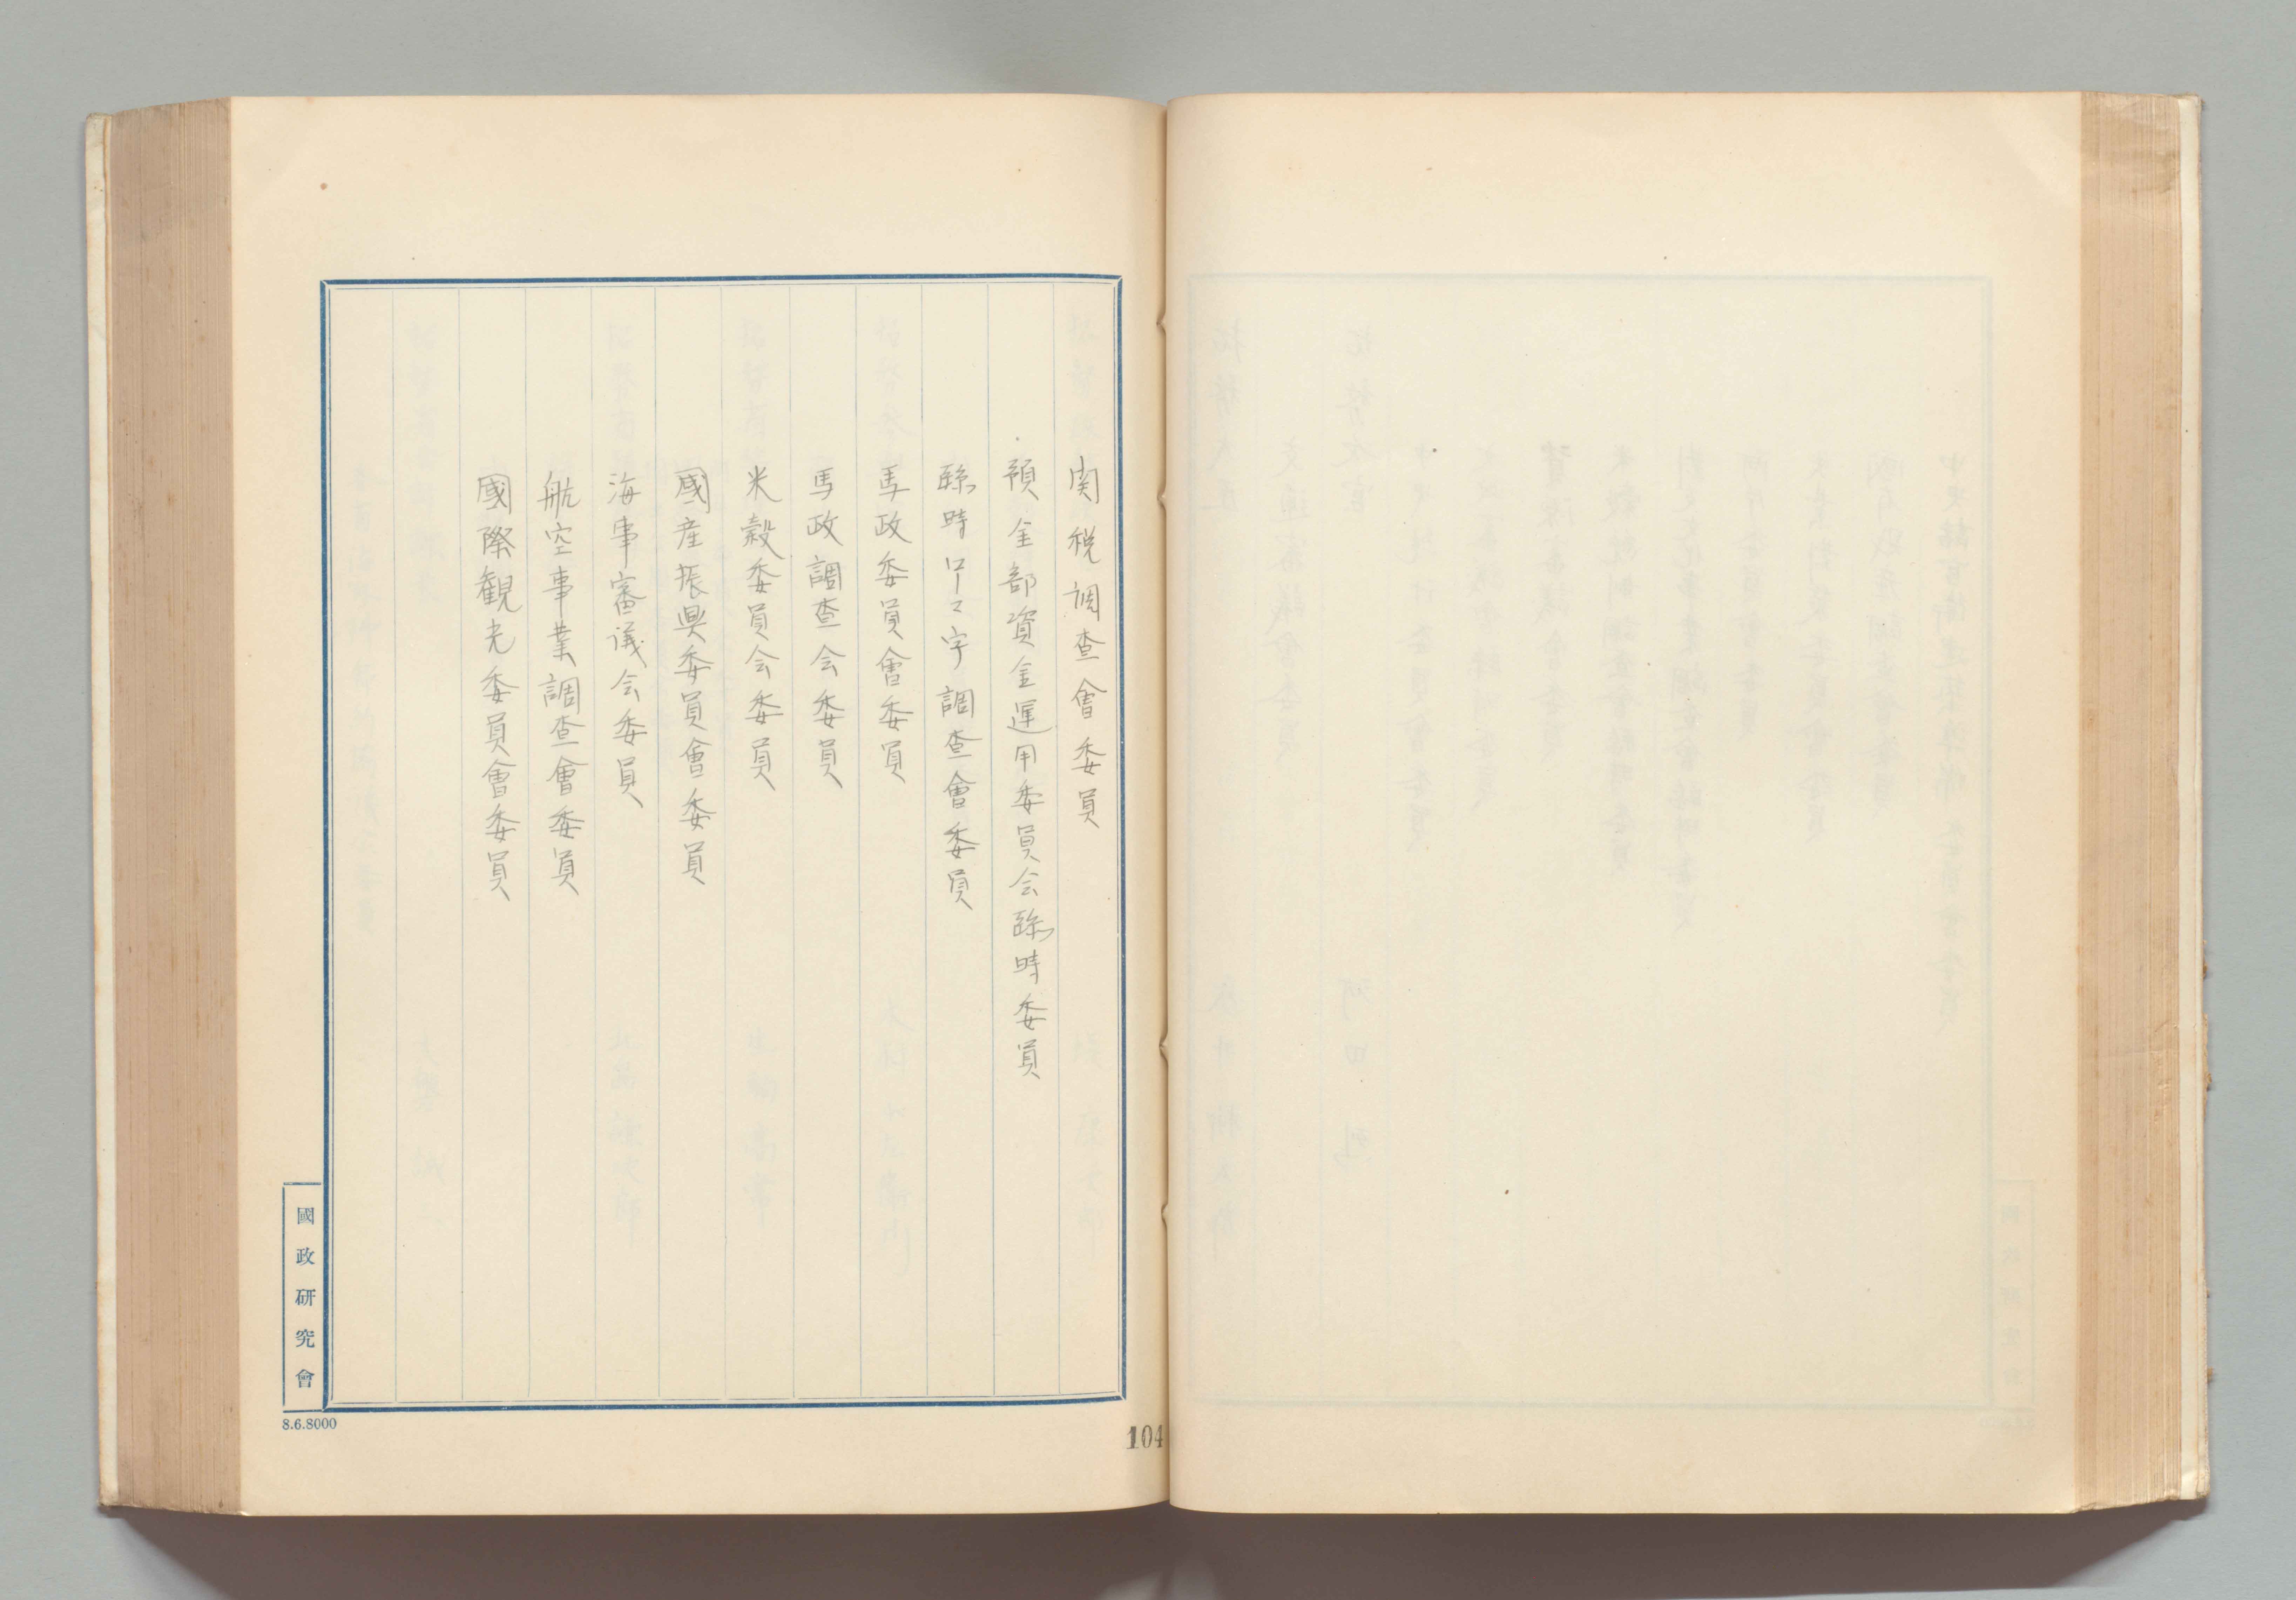 関税調査會委員
預金部資金運用委員会臨時委員
臨時ローマ字調査會委員
馬政委員會委員
馬政調査会委員
米穀委員会委員
國産振興委員會委員
海事審議会委員
航空事業調査會委員
國際観光委員會委員
國政研究會
8.6.8000
104